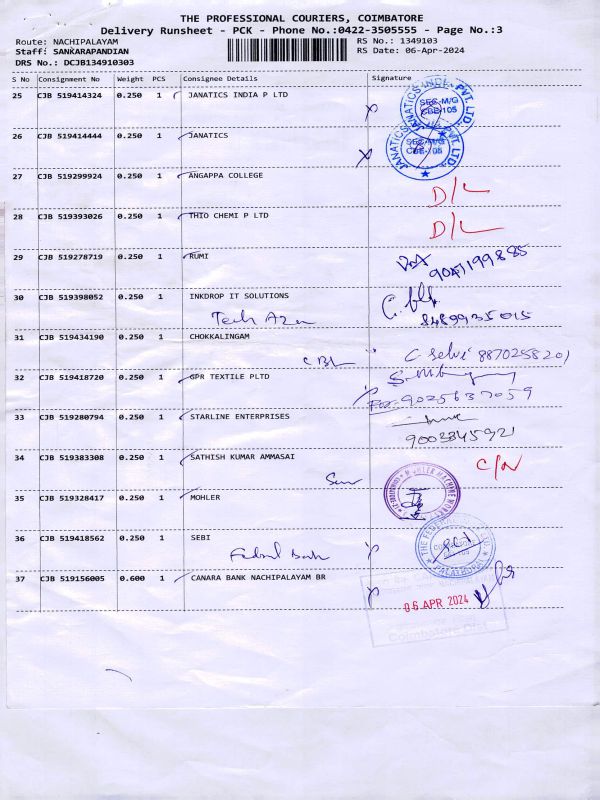 THE PROFESSIONAL COURIERS, COIMBATORE
Delivery Runsheet - PCK - Phone No.:0422-3505555 - Page No.:3
Route: NACHIPALAYAM RS No.: 1349103
Staff: SANKARAPANDIAN RS Date: 06-Apr-2024
DRS No.: DCJB134910303
S No Consignment No Weight PCS Consignee Details Signature
25 CJB 519414324 0.250 1 JANATICS INDIA P LTD
JANATICS INDIA PVT. LTD.
SEC-M/G
CBE-105
26 CJB 519414444 0.250 1 JANATICS
SEC-M/G
CBE-105
27 CJB 519299924 0.250 1 ANGAPPA COLLEGE D/L
28 CJB 519393026 0.250 1 THIO CHEMI P LTD D/L
29 CJB 519278719 0.250 1 RUMI
30 CJB 519398052 0.250 1 INKDROP IT SOLUTIONS
8489935015
31 CJB 519434190 0.250 1 CHOKKALINGAM
C Selvi 8870258201
32 CJB 519418720 0.250 1 GPR TEXTILE PLTD
9025637059
33 CJB 519280794 0.250 1 STARLINE ENTERPRISES
9003845921
34 CJB 519383308 0.250 1 SATHISH KUMAR AMMASAI
35 CJB 519328417 0.250 1 MOHLER
36 CJB 519418562 0.250 1 SEBI
Fedral Bank
THE FEDERAL
37 CJB 519156005 0.600 1 CANARA BANK NACHIPALAYAM BR
06 APR 2024
Coimbatore Dist